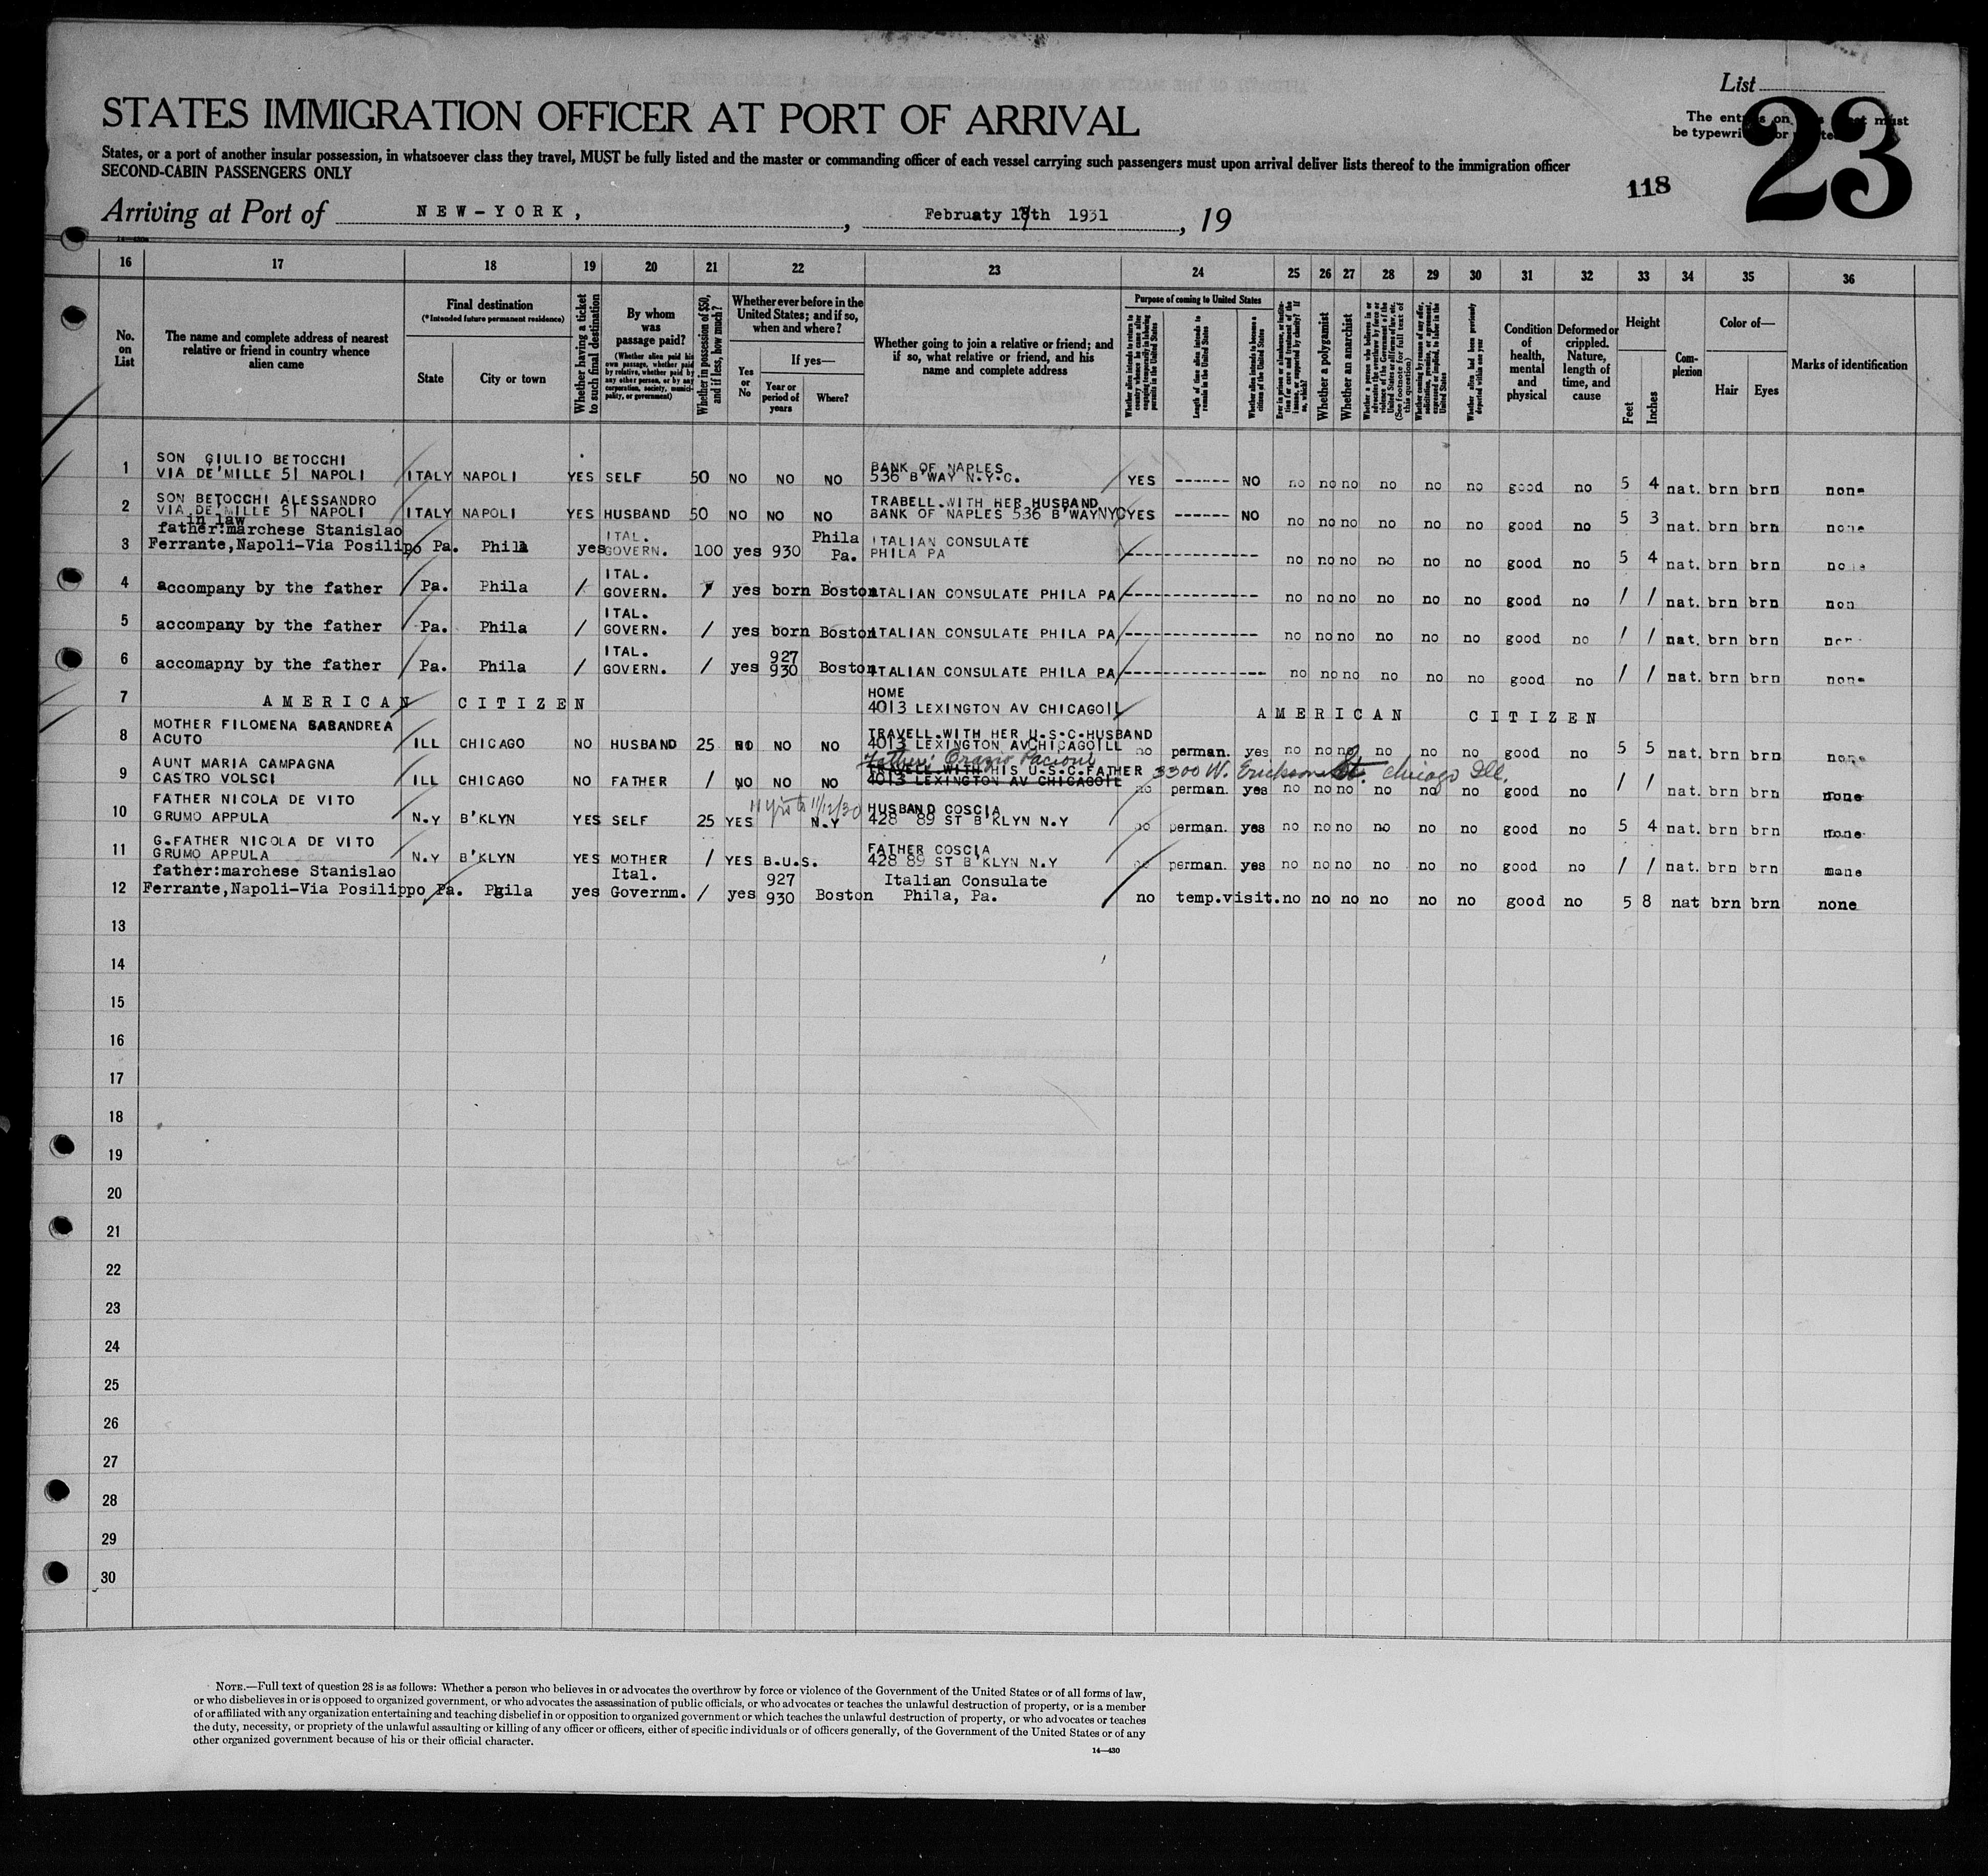 List
The entries on this sheet must
be typewritten or printed.
23
118
STATES IMMIGRATION OFFICER AT PORT OF ARRIVAL
States, or a port of another insular possession, in whatsoever class they travel, MUST be fully listed and the master or commanding officer of each vessel carrying such passengers must upon arrival deliver lists thereof to the immigration officer
SECOND-CABIN PASSENGERS ONLY
Arriving at Port of NEW-YORK, , Februaty th 1931 , 19
16 17 18 19 20 21 22 23 24 25 26 27 28 29 30 31 32 33 34 35 36
No. on List
The name and complete address of nearest relative or friend in country whence alien came
Final destination
(*Intended future permanent residence)
State
City or town
Whether having a ticket to such final destination
By whom was passage paid?
(Whether alien paid his own passage, whether paid by relative, whether paid by any other person, or by any corporation, society, municipality, or government)
Whether in possession of $50, and if less, how much?
Whether ever before in the United States; and if so, when and where?
Yes or No
If yes—
Year or period of years
Where?
Whether going to join a relative or friend; and if so, what relative or friend, and his name and complete address
Purpose of coming to United States
Whether alien intends to return to country whence he came after engaging temporarily in laboring pursuits in the United States
Length of time alien intends to remain in the United States
Whether alien intends to become a citizen of the United States
Ever in prison or almshouse, or institution for care and treatment of the insane, or supported by charity? If so, which?
Whether a polygamist
Whether an anarchist
Whether a person who believes in or advocates the overthrow by force or violence of the Government of the United States or all forms of law, etc. (See footnote for full text of this question)
Whether coming by reason of any offer, solicitation, promise, or agreement, expressed or implied, to labor in the United States
Whether alien had been previously deported within one year
Condition of health, mental and physical
Deformed or crippled. Nature, length of time, and cause
Height
Feet
Inches
Complexion
Color of—
Hair
Eyes
Marks of identification
1 SON GIULIO BETOCCHI
VIA DE'MILLE 51 NAPOLI ITALY NAPOLI YES SELF 50 NO NO NO BANK OF NAPLES
536 B'WAY N.Y.C. YES ------ NO no no no no no no good no 5 4 nat. brn brn none
2 SON BETOCCHI ALESSANDRO
VIA DE'MILLE 51 NAPOLI ITALY NAPOLI YES HUSBAND 50 NO NO NO TRABELL.WITH HER HUSBAND
BANK OF NAPLES 536 B'WAYNYC YES ------ NO no no no no no no good no 5 3 nat. brn brn none
in law
father:marchese Stanislao
3 Ferrante,Napoli-Via Posilipo Pa. Phila yes ITAL.
GOVERN. 100 yes 930 Phila
Pa. ITALIAN CONSULATE
PHILA PA -------------- no no no no no no good no 5 4 nat. brn brn none
4 accompany by the father Pa. Phila / ITAL.
GOVERN. / yes born Boston ITALIAN CONSULATE PHILA PA -------------- no no no no no no good no / / nat. brn brn non
5 accompany by the father Pa. Phila / ITAL.
GOVERN. / yes born Boston ITALIAN CONSULATE PHILA PA -------------- no no no no no no good no / / nat. brn brn non
6 accomapny by the father Pa. Phila / ITAL.
GOVERN. / yes 927
930 Boston ITALIAN CONSULATE PHILA PA --------------- no no no no no no good no / / nat. brn brn none
7 AMERICAN CITIZEN HOME
4013 LEXINGTON AV CHICAGOIL AMERICAN CITIZEN
8 MOTHER FILOMENA SABANDREA
ACUTO ILL CHICAGO NO HUSBAND 25 NO NO NO TRAVELL.WITH HER U-S-C-HUSBAND
4013 LEXINGTON AVCHICAGOILL no perman. yes no no no no no no good no 5 5 nat. brn brn none
9 AUNT MARIA CAMPAGNA
CASTRO VOLSCI ILL CHICAGO NO FATHER / NO NO NO father: Orazio Pacioni 3300 W. Erickson St. Chicago Ill.
TRAVELL WITH HIS U-S-C.FATHER
4013 LEXINGTON AV CHICAGOIL no perman. yes no no no no no no good no / / nat. brn brn none
10 FATHER NICOLA DE VITO
GRUMO APPULA N.Y B'KLYN YES SELF 25 YES 11 yrs to 11/12/30 N.Y HUSBAND COSCIA
428 89 ST B'KLYN N.Y no perman. yes no no no no no no good no 5 4 nat. brn brn none
11 G.FATHER NICOLA DE VITO
GRUMO APPULA N.Y B'KLYN YES MOTHER / YES B.U.S. FATHER COSCIA
428 89 ST B'KLYN N.Y no perman. yes no no no no no no good no / / nat. brn brn mone
father:marchese Stanislao
12 Ferrante,Napoli-Via Posilippo Pa. Phila yes Ital.
Governm. / yes 927
930 Boston Italian Consulate
Phila, Pa. no temp.visit. no no no no no no good no 5 8 nat brn brn none
13
14
15
16
17
18
19
20
21
22
23
24
25
26
27
28
29
30
NOTE.—Full text of question 28 is as follows: Whether a person who believes in or advocates the overthrow by force or violence of the Government of the United States or of all forms of law,
or who disbelieves in or is opposed to organized government, or who advocates the assassination of public officials, or who advocates or teaches the unlawful destruction of property, or is a member
of or affiliated with any organization entertaining and teaching disbelief in or opposition to organized government or which teaches the unlawful destruction of property, or who advocates or teaches
the duty, necessity, or propriety of the unlawful assaulting or killing of any officer or officers, either of specific individuals or of officers generally, of the Government of the United States or of any
other organized government because of his or their official character.
14—430